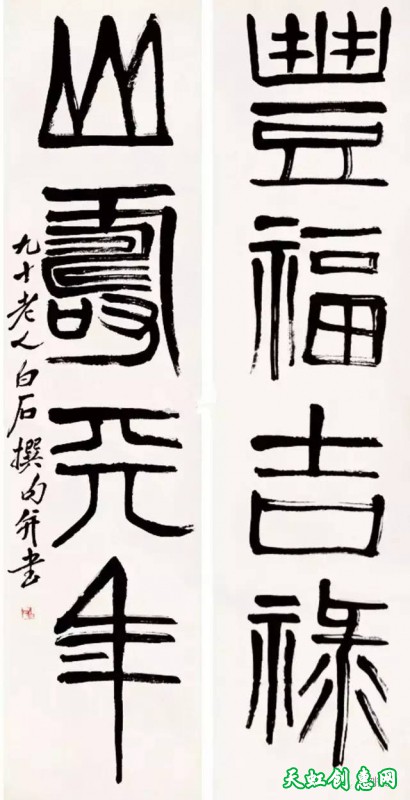 豐福吉祿
山壽年
九十老人白石撰句并書
天虹创惠网